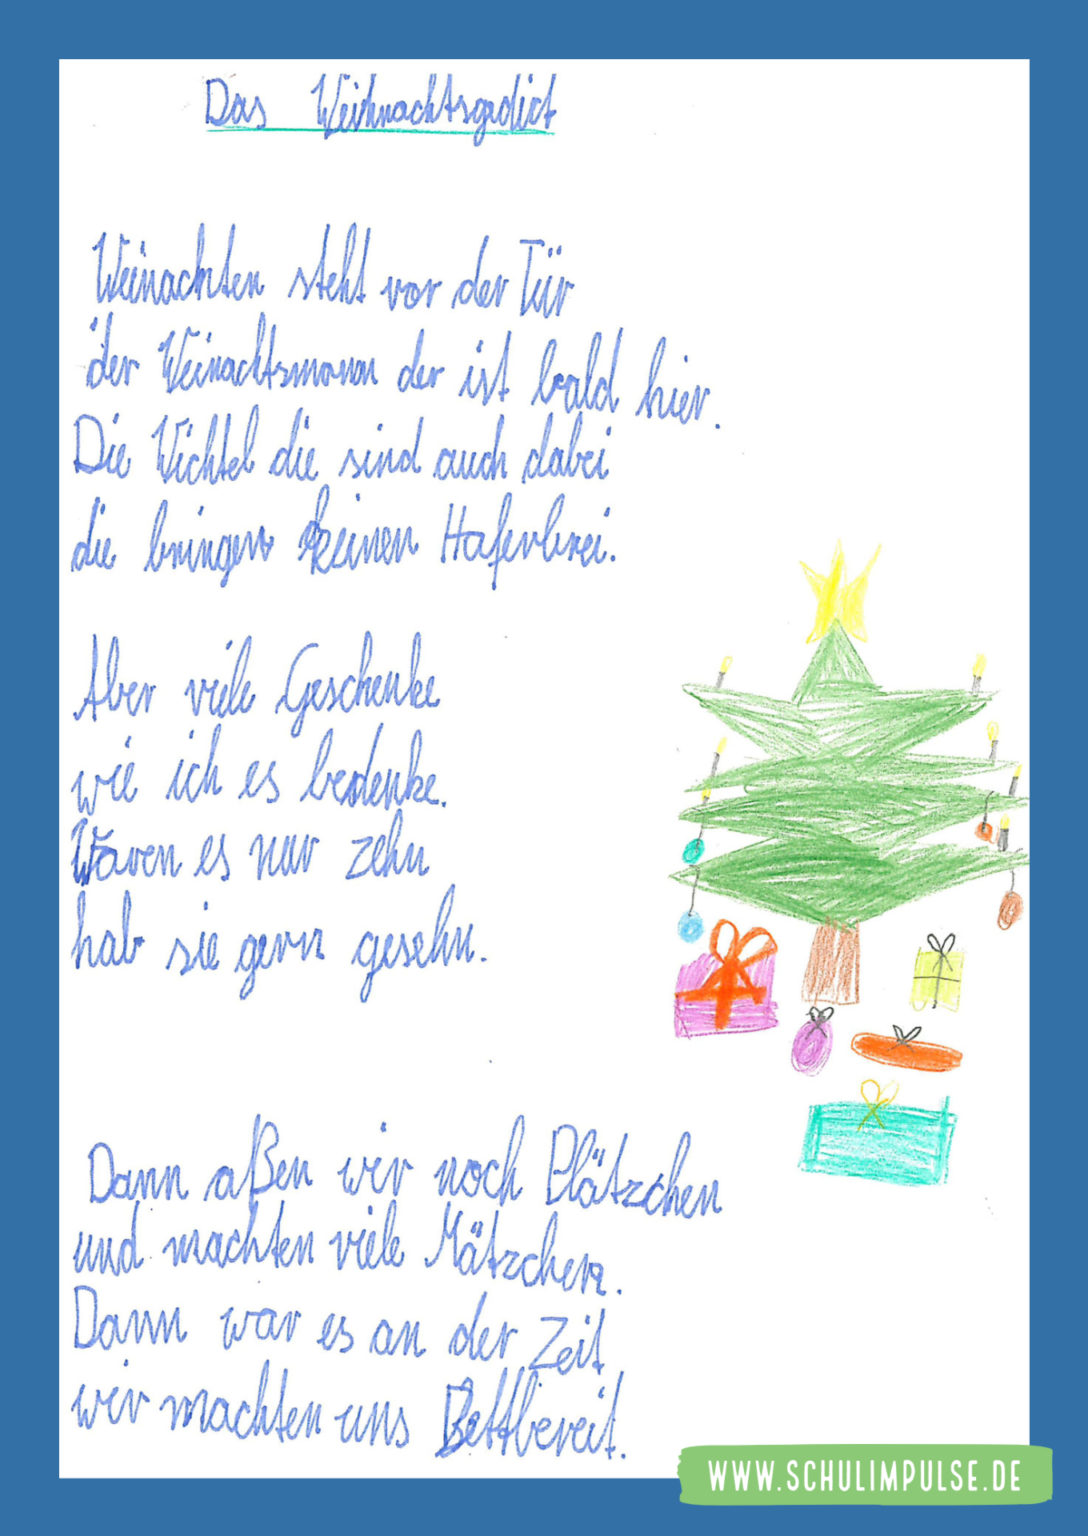 Das Weihnachtsgedict
Weinachten steht vor der Tür
der Weinachtsmann der ist bald hier.
Die Wichtel die sind auch dabei
die bringen keinen Haferbrei.
Aber viele Geschenke
wie ich es bedenke.
Waren es nur zehn
hab sie gern gesehn.
Dann aßen wir noch Plätzchen
und machten viele Mätzchen.
Dann war es an der Zeit
wir machten uns Bettbereit.
WWW.SCHULIMPULSE.DE